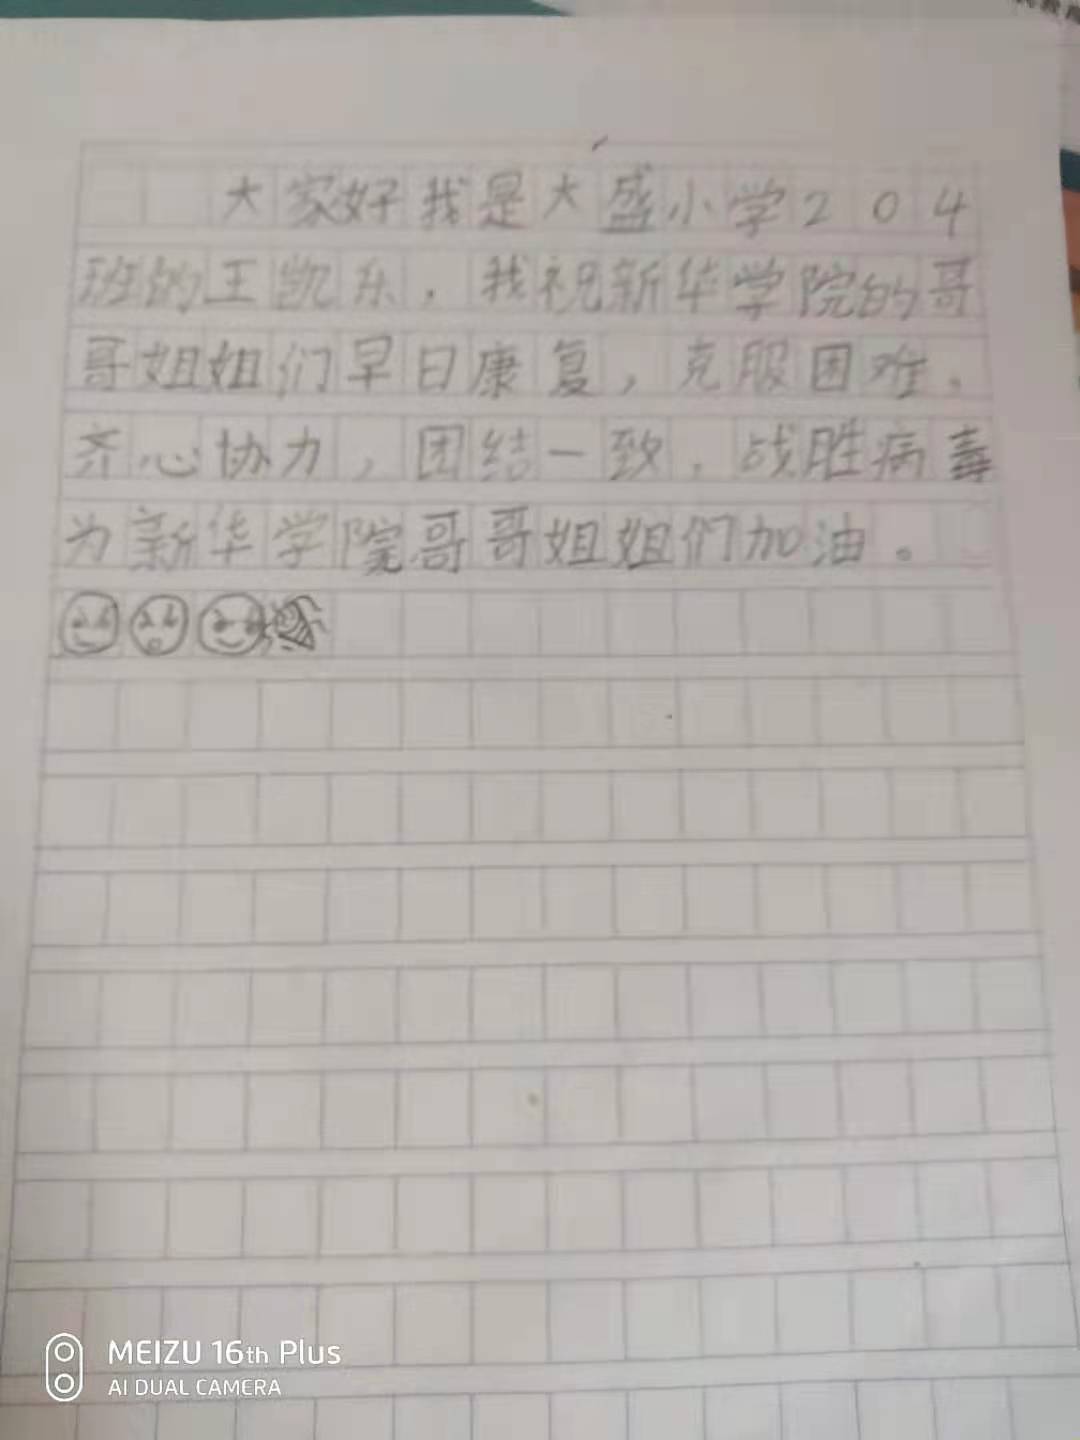 大家好我是大盛小学204
班的王凯乐，我祝新华学院的哥
哥姐姐们早日康复，克服困难。
齐心协力，团结一致，战胜病毒
为新华学院哥哥姐姐们加油。
MEIZU 16th Plus
AI DUAL CAMERA